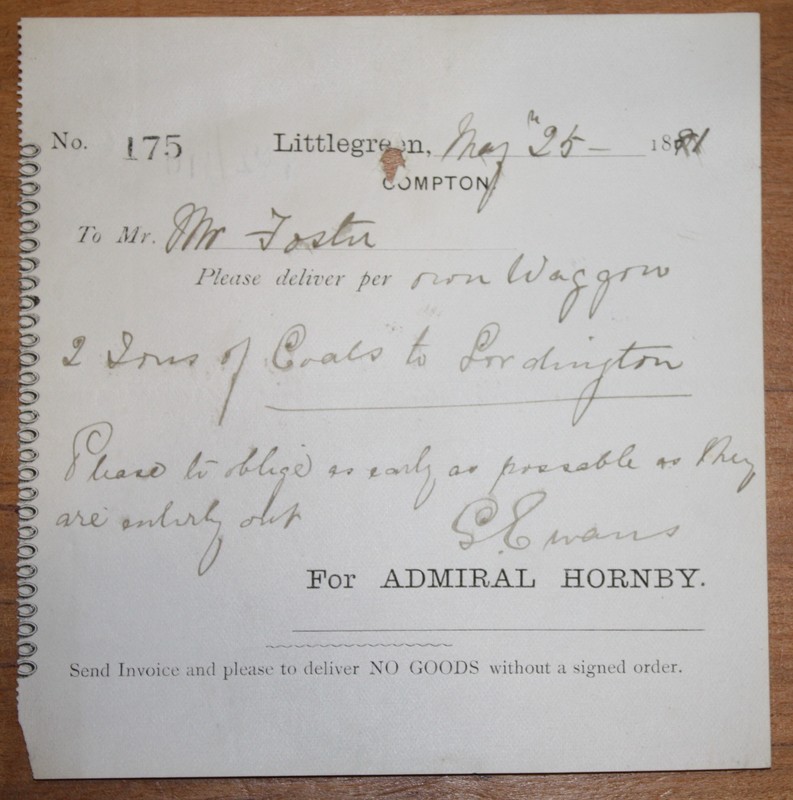 No. 175 Littlegreen, May 25th – 1881
COMPTON
To Mr. Mr Foster
Please deliver per own Waggon
2 Tons of Coals to Lordington
Please to oblige as early as possable as they
are entirly out
G. Evans
For ADMIRAL HORNBY.
Send Invoice and please to deliver NO GOODS without a signed order.